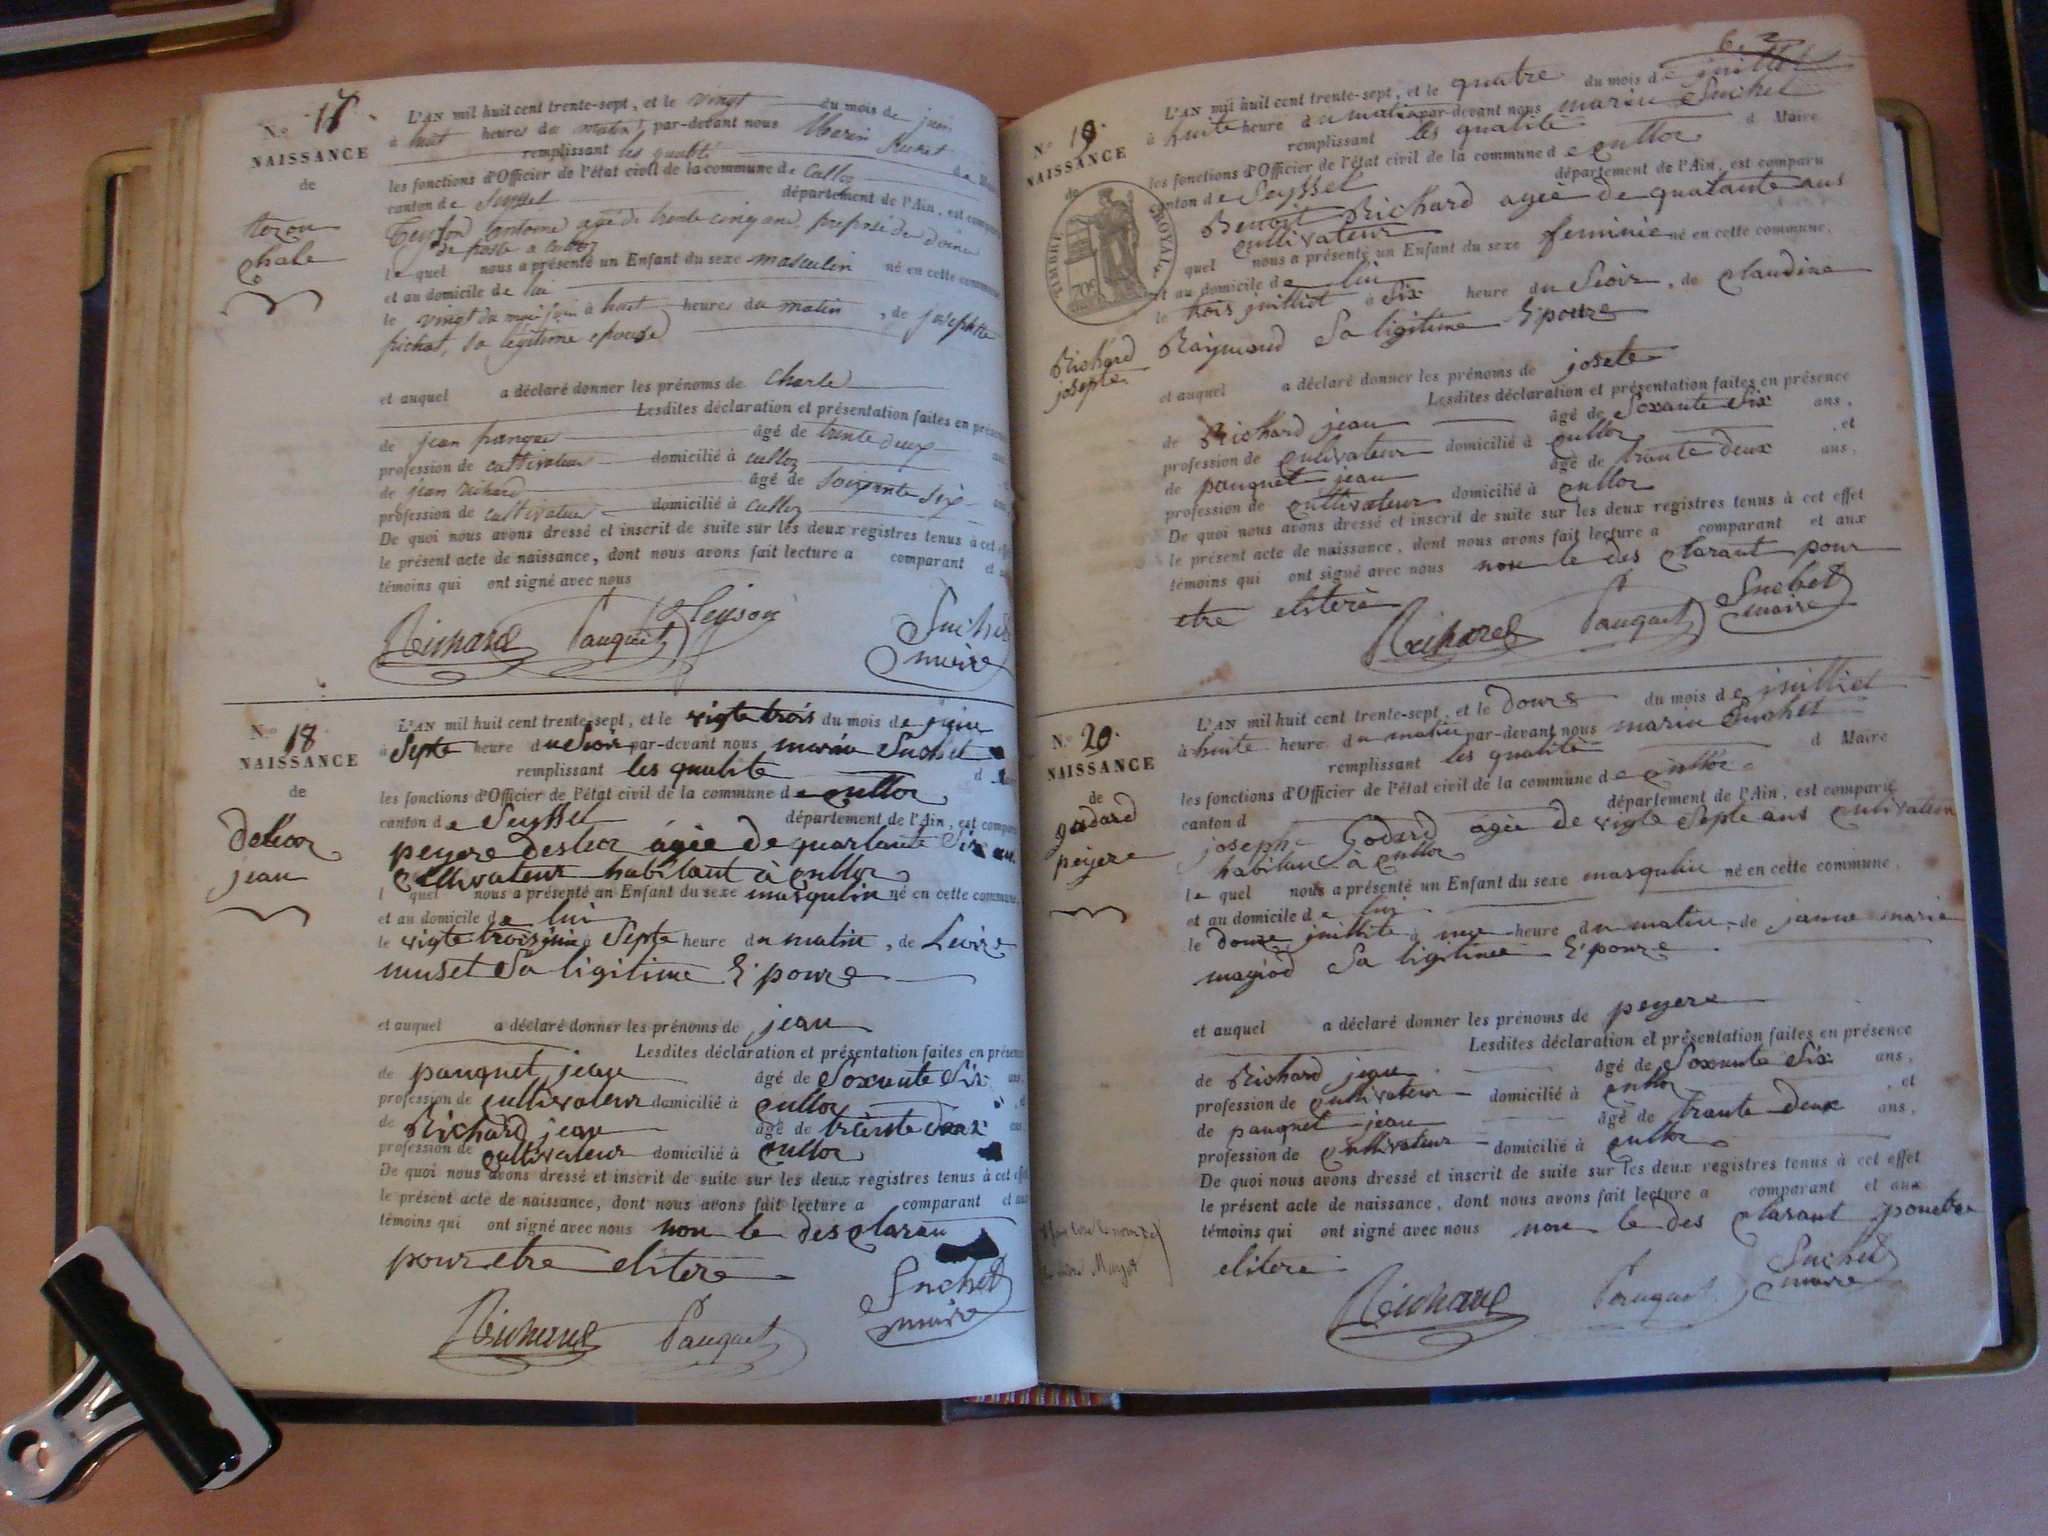 N.º 17.
NAISSANCE
de
tezon
Chale
L'AN mil huit cent trente-sept, et le vingt du mois de juin
à huit heures du matin par-devant nous Marin Suchet
remplissant les qualité de Maire
les fonctions d'Officier de l'état civil de la commune de Culloz
canton de Seyssel département de l'Ain, est comparu
antoine agé de trente cinq ans, preposé de
de poste a Culloz
le quel nous a présenté un Enfant du sexe masculin né en cette commune
et au domicile de lui
le vingt du moi juin à huit heures du matin, de josephte
pichat, sa légitime epouse
et auquel a déclaré donner les prénoms de Charle
Lesdites déclaration et présentation faites en présence
de jean panque âgé de trente deux ans
profession de cultivateur domicilié à culloz
de jean richard âgé de soixante six ans
profession de cultivateur domicilié à culloz
De quoi nous avons dressé et inscrit de suite sur les deux registres tenus à cet effet
le présent acte de naissance, dont nous avons fait lecture a comparant et aux
témoins qui ont signé avec nous
Richard Pauquet Teyson Suchet
maire
N.º 18.
NAISSANCE
de
deleor
jean
L'AN mil huit cent trente-sept, et le vigte trois du mois de juin
à Septe heure du Soir par-devant nous marin Suchet
remplissant les qualité d Maire
les fonctions d'Officier de l'état civil de la commune de culloz
canton de Seyssel département de l'Ain, est comparu
peyere Desleor agée de quarlante Six an
Cultivateur habitant à culloz
l quel nous a présenté un Enfant du sexe masqulin né en cette commune
et au domicile de lui
le vigte trois juin à Septe heure du matin, de Levise
muset Sa ligitime Epouze
et auquel a déclaré donner les prénoms de jean
Lesdites déclaration et présentation faites en présence
de pauquet jean âgé de Soxante Six ans
profession de cultivateur domicilié à culloz, et
de Richard jean âgé de trante deux ans
profession de cultivateur domicilié à culloz
De quoi nous avons dressé et inscrit de suite sur les deux registres tenus à cet effet
le présent acte de naissance, dont nous avons fait lecture a comparant et aux
témoins qui ont signé avec nous non le des claran
pour etre elitere
Richard Pauquet Suchet
maire
6.
N.º 19.
NAISSANCE
de
TIMBRE ROYAL
70c
Richard
josepte
L'AN mil huit cent trente-sept, et le quatre du mois de juillet
à huite heure du matin par-devant nous marin Suchet
remplissant les qualité d Maire
les fonctions d'Officier de l'état civil de la commune de culloz
canton de Seyssel département de l'Ain, est comparu
Benoit Richard agée de quatante ans
cultivateur
quel nous a présenté un Enfant du sexe feminie né en cette commune,
et au domicile de lui
le trois juilliet à Six heure du Soir, de claudine
Raymond Sa ligitime Epouze
et auquel a déclaré donner les prénoms de josete
Lesdites déclaration et présentation faites en présence
de Richard jean âgé de Soxante Six ans,
profession de cultivateur domicilié à culloz, et
de pauquet jean âgé de trante deux ans,
profession de cultivateur domicilié à culloz
De quoi nous avons dressé et inscrit de suite sur les deux registres tenus à cet effet
le présent acte de naissance, dont nous avons fait lecture a comparant et aux
témoins qui ont signé avec nous non le des clarant pour
etre elitere
Richard Pauquet Suchet
maire
N.º 20.
NAISSANCE
de
godard
peyere
L'AN mil huit cent trente-sept, et le douze du mois de juilliet
à huite heure du matin par-devant nous marin Suchet
remplissant les qualité d Maire
les fonctions d'Officier de l'état civil de la commune de culloz
canton d département de l'Ain, est comparu
joseph Godard agée de vigte Septe ans cultivateur
habitant à culloz
le quel nous a présenté un Enfant du sexe masqulin né en cette commune,
et au domicile de lui
le douze juillite à heure du matin, de janne marie
magiod Sa ligitime Epouze
et auquel a déclaré donner les prénoms de peyere
Lesdites déclaration et présentation faites en présence
de Richard jean âgé de Soxante Six ans,
profession de cultivateur domicilié à culloz, et
de pauquet jean âgé de trante deux ans,
profession de cultivateur domicilié à culloz
De quoi nous avons dressé et inscrit de suite sur les deux registres tenus à cet effet
le présent acte de naissance, dont nous avons fait lecture a comparant et aux
témoins qui ont signé avec nous non le des clarant pouretre
elitere
Richard Pauquet Suchet
maire